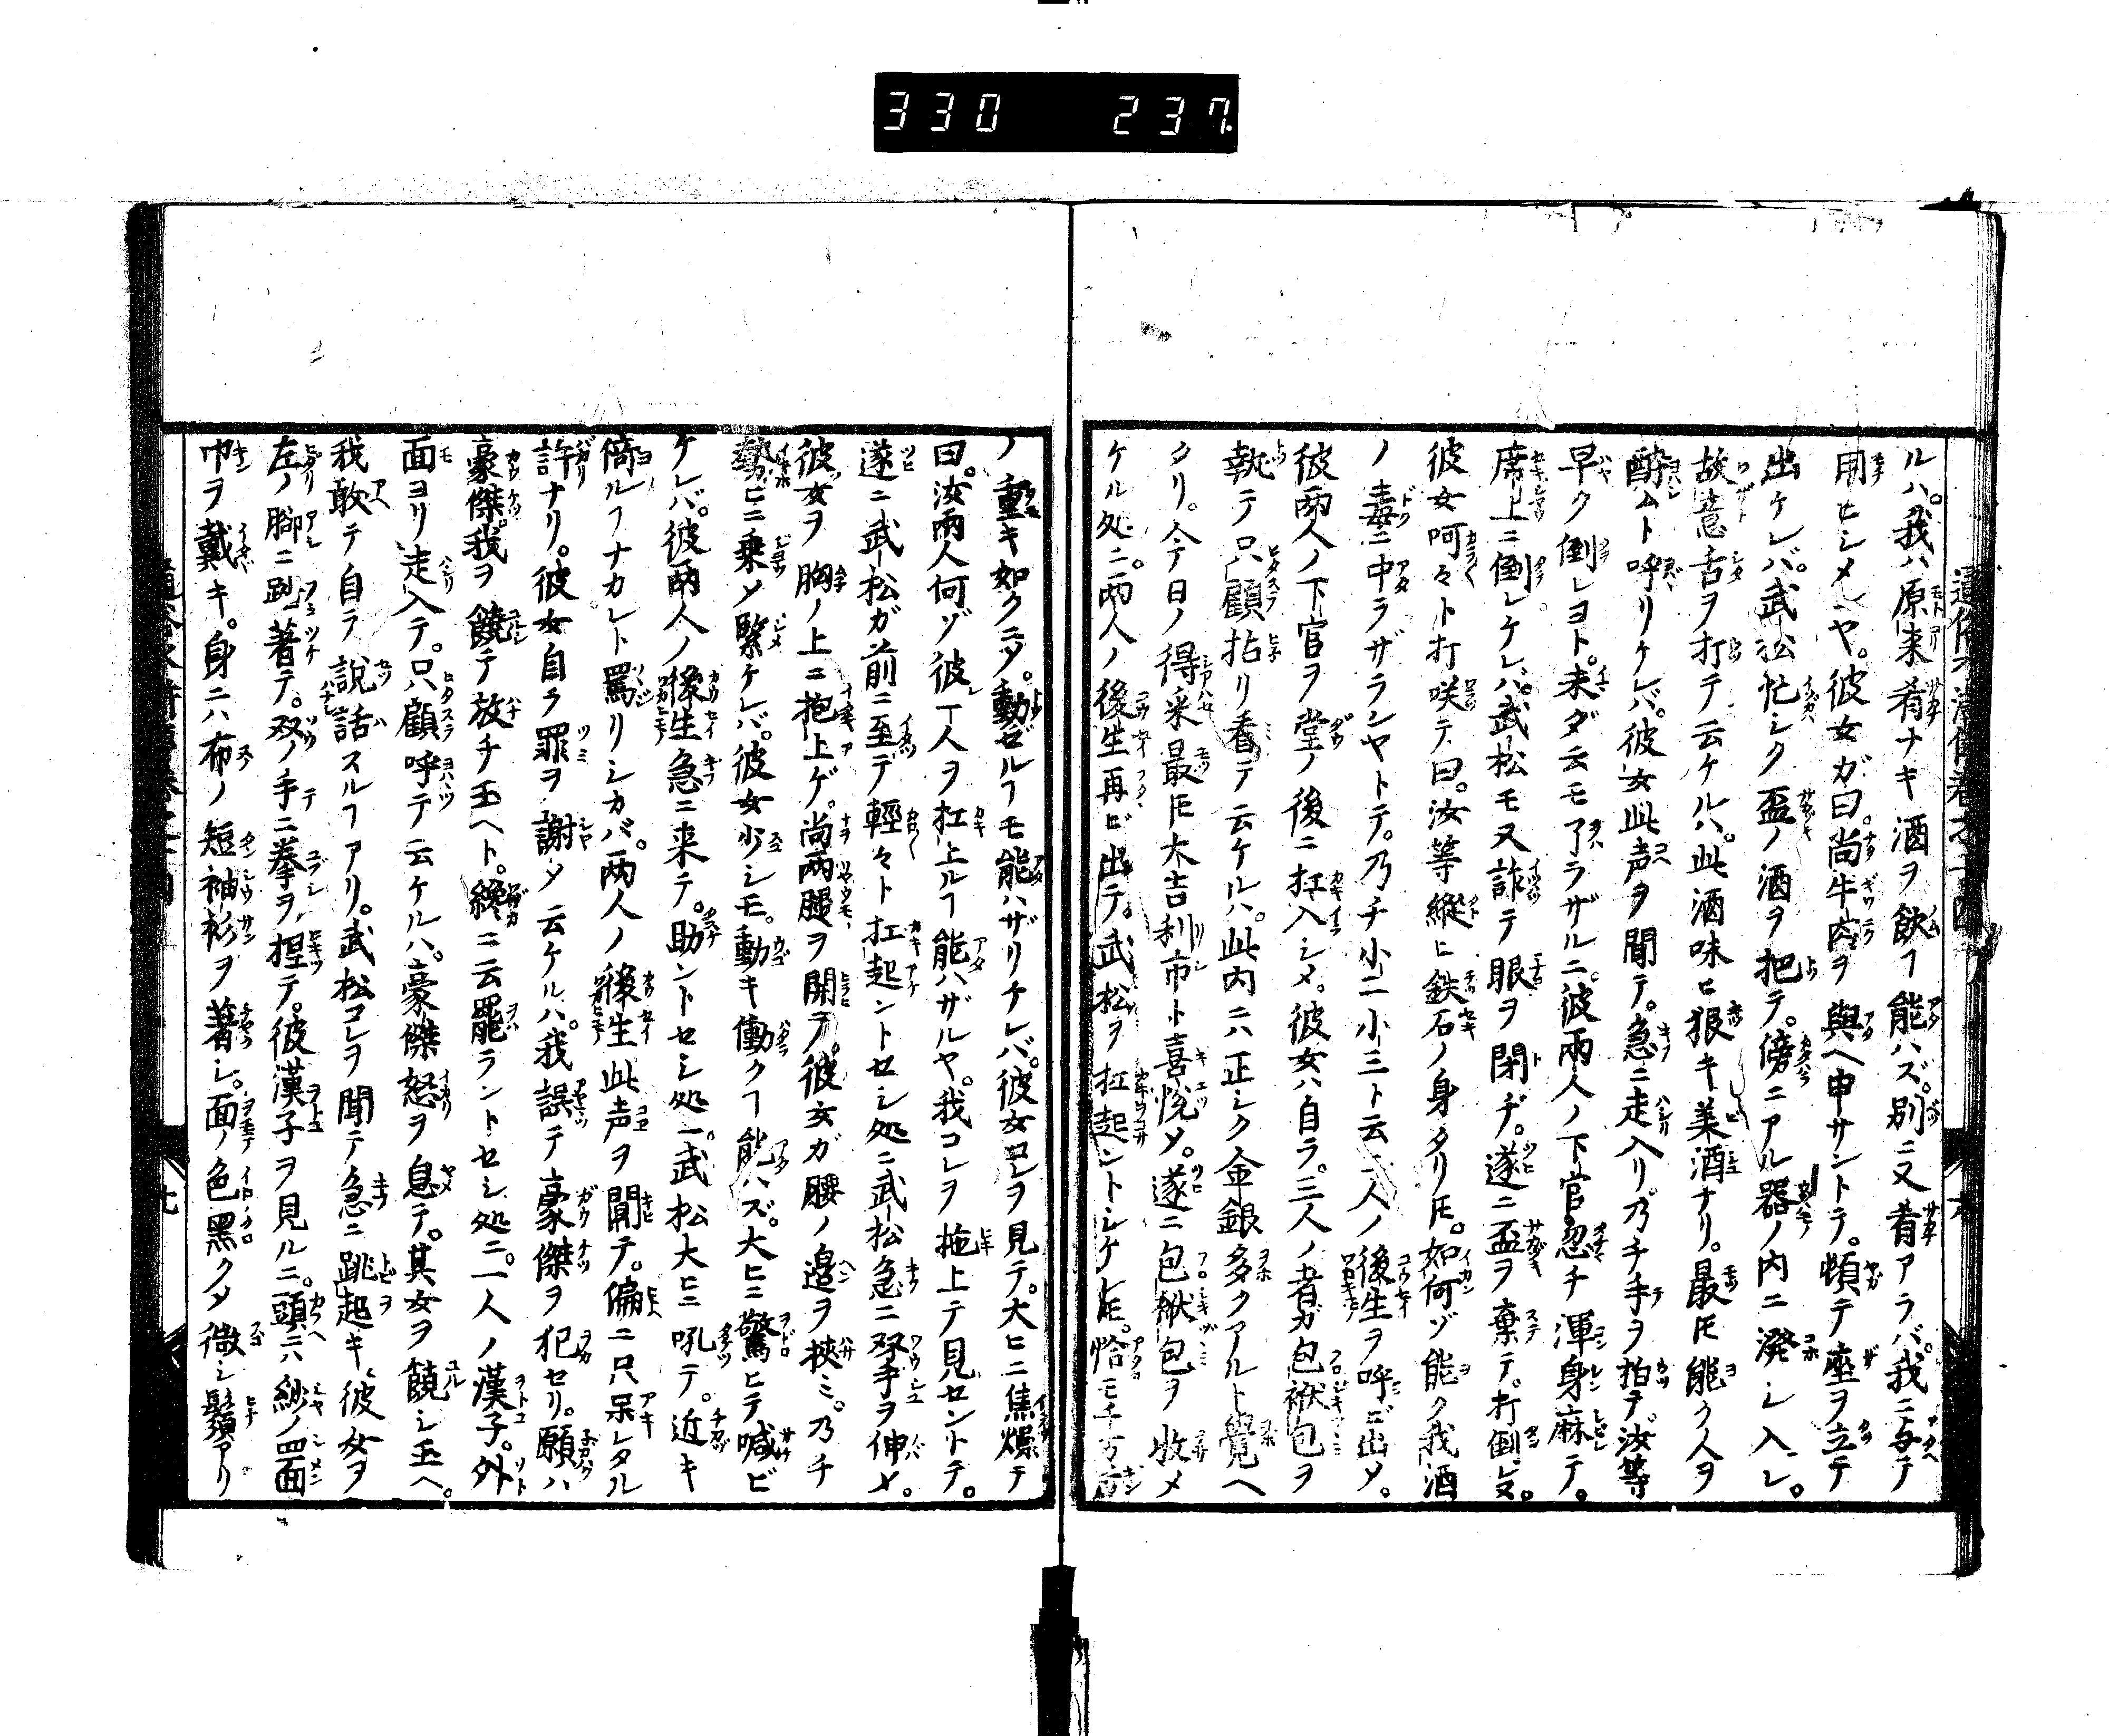 330 237.
ルハ。我ハ原来肴ナキ酒ヲ飲ヿ能ハズ。別ニ又肴アラバ。我ニ与テ
用ヒシメンヤ。彼女ガ曰。尚牛肉ヲ與ヘ申サントテ。頓テ座ヲ立テ
出ケレバ。武松忙シク盃ノ酒ヲ把テ。傍ニアル器ノ内ニ溌シ入レ。
故意舌ヲ打テ云ケルハ。此酒味ヒ狠キ美酒ナリ。最𪜈能ク人ヲ
酔ムト呼リケレバ。彼女此声ヲ聞テ。急ニ走入リ乃チ手ヲ拍テ汝等
早ク倒レヨト。未ダ云モ了ラザルニ。彼兩人ノ下官忽チ渾身麻テ。
席上ニ倒レケレハ。武松モ又詐テ眼ヲ閉ヂ。遂ニ盃ヲ棄テ。打倒レ
彼女呵々ト打咲テ曰。汝等縦ヒ鉄石ノ身タリ𪜈。如何ゾ能ク我酒
ノ毒ニ中ラザランヤトテ。乃チ小二小三ト云二人ノ後生ヲ呼ビ出メ。
彼兩人ノ下官ヲ堂ノ後ニ扛入シメ。彼女ハ自ラ。三人ノ者ガ包袱包ヲ
執テ只顧拈リ看テ云ケルハ。此内ニハ正シク金銀多クアルト覺ヘ
タリ。今日ノ得采最𪜈大吉利市ト喜悦メ。遂ニ包袱包ヲ收メ
ケル処ニ。兩人ノ後生再ビ出テ。武松ヲ扛起ントシケレ𪜈。恰モ千万斤
ノ重キ如クニメ。動ゼルヿモ能ハザリケレバ。彼女コレヲ見テ。大ヒニ焦燥テ
曰。汝兩人何ゾ彼一人ヲ扛上ルヿ能ハザルヤ。我コレヲ拖上テ見セントテ。
遂ニ武松ガ前ニ至テ輕々ト扛起ントセシ処ニ武松急ニ双手ヲ伸メ。
彼女ヲ胸ノ上ニ抱上ゲ。尚兩腿ヲ開テ。彼女ガ腰ノ邉ヲ挾ミ。乃チ
勢ヒニ乗メ緊ケレバ。彼女少シモ。動キ働クヿ能ハズ。大ヒニ驚ヒテ喊ビ
ケレバ。彼兩人ノ後生急ニ来テ。助ントセシ処ニ。武松大ヒニ吼テ。近キ
倚ルヿナカレト罵リシカバ。兩人ノ後生此声ヲ聞テ。偏ニ只呆レタル
許ナリ。彼女自ラ罪ヲ謝メ云ケルハ。我誤テ豪傑ヲ犯セリ。願ハ
豪傑。我ヲ饒テ放チ玉ヘト。纔ニ云罷ラントセシ処ニ。一人ノ漢子。外
面ヨリ走入テ。只顧呼テ云ケルハ。豪傑怒ヲ息テ。其女ヲ饒シ玉ヘ。
我敢テ自ラ説話スルヿアリ。武松コレヲ聞テ急ニ跳起キ彼女ヲ
左ノ脚ニ跐著テ。双ノ手ニ拳ヲ捏テ。彼漢子ヲ見ルニ。頭ニハ紗ノ四面
巾ヲ戴キ。身ニハ布ノ短袖衫ヲ著シ。面ノ色黒クメ微シ鬚アリ